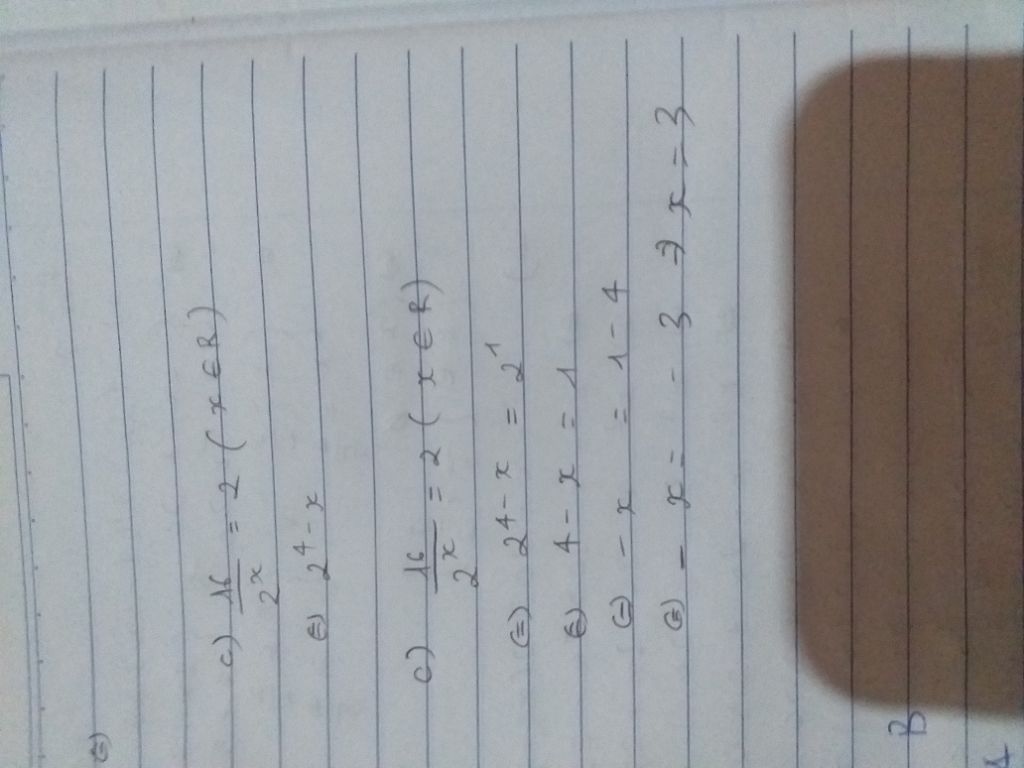 (=)
c) 16/2^x = 2 ( x ∈ R )
(=) 2^4 - x
c) 16/2^x = 2 ( x ∈ R )
(=) 2^4 - x = 2^1
(=) 4 - x = 1
(=) - x = 1 - 4
(=) - x = - 3 => x = 3
B